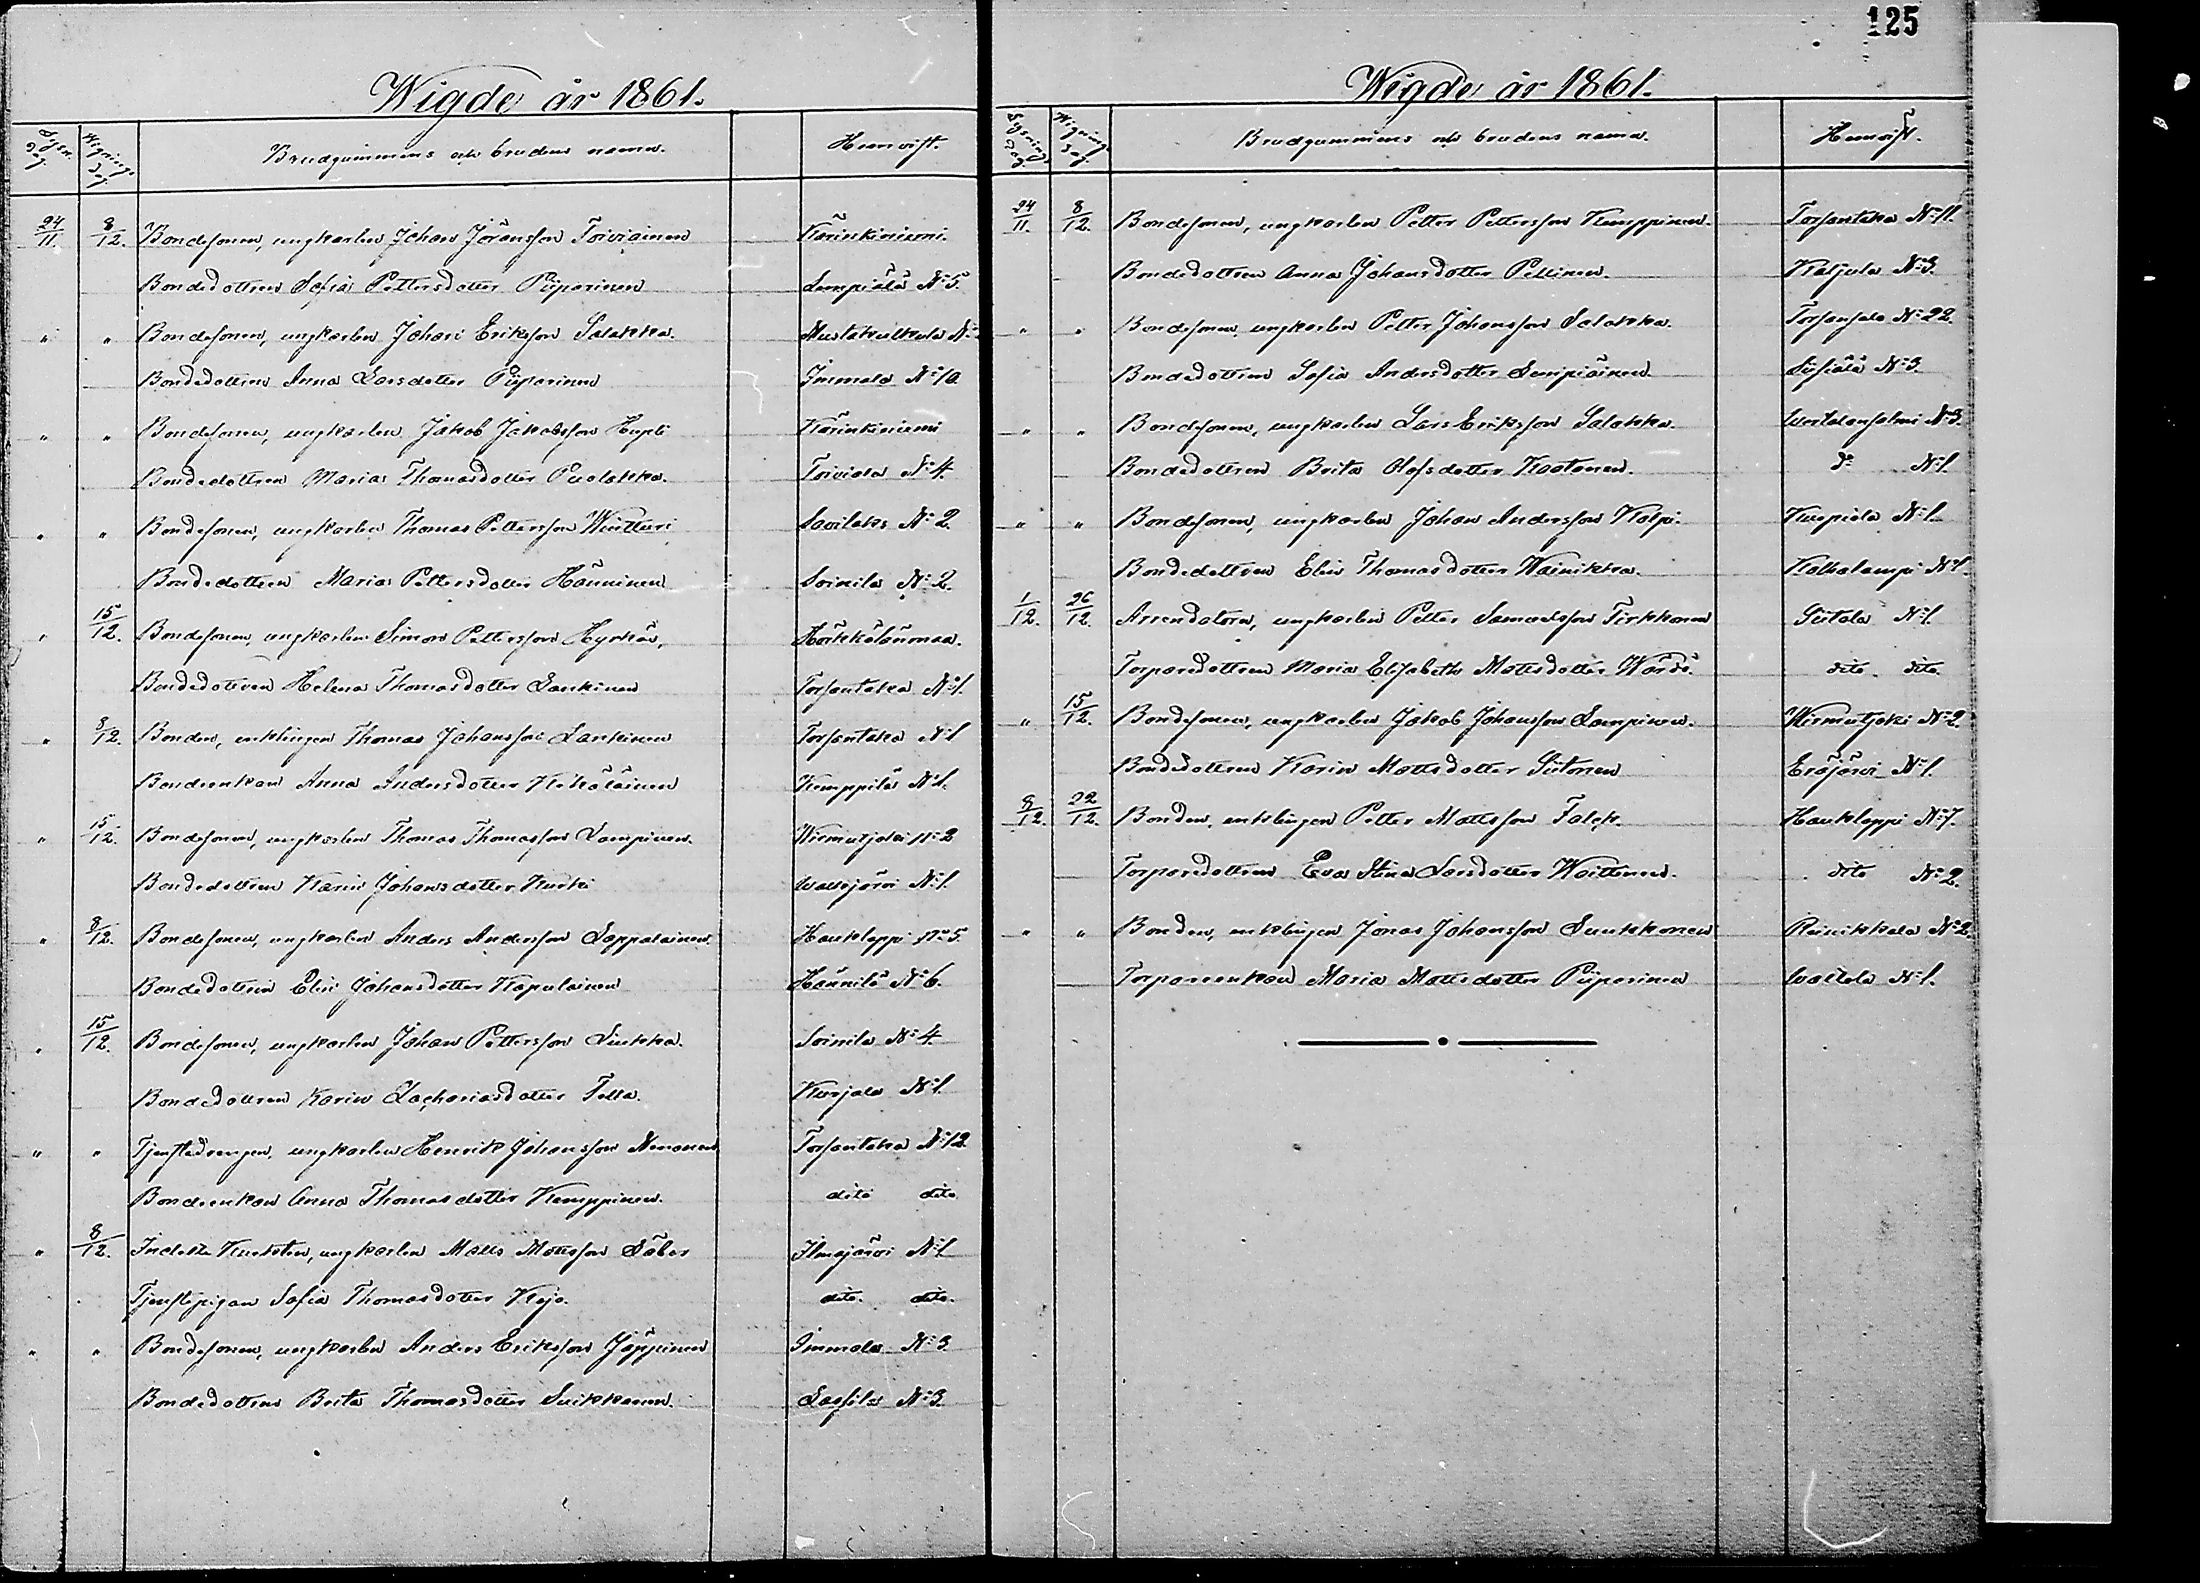 125
Wigde år 1861.
Lysn. Dag. Wignings dag Brudgummens och brudens namn. Hemvist.
24/11. 8/12. Bondesonen, ungkarlen Johan Jöransson Toiviainen Kärinkiniemi.
Bondedottren Sofia Pettersdotter Piiparinen Lumpiälä No 5.
" " Bondesonen, ungkarlen Johan Eriksson Salakka. Mustakulkula No
Bondedottren Anna Larsdotter Piiparinen Immala No 10.
" " Bondesonen, ungkarlen Jakob Jakobsson Hupli Kärinkiniemi
Bondedottren Maria Thomasdotter Puolakka. Toiviola No 4.
" " Bondesonen, ungkarlen Thomas Pettersson Wirtteri Savilaks No 2.
Bondedottren Maria Pettersdotter Hänninen Soinila No 2.
" 15/12. Bondesonen, ungkarlen Simon Pettersson Hyrkäs,
Bondedottren Helena Thomasdotter Lankinen Torsantaka No 1.
" 8/12. Bonden, enklingen Thomas Johansson Lankinen Torsantaka No 1
Bondeenkan Anna Andersdotter Kekäläinen Kemppilä No 1.
" 15/12. Bondesonen, ungkarlen Thomas Thomasson Lampinen. Wirmutjoki No 2
Bondedottren Karin Johansdotter Kurki No 1.
" 8/12. Bondesonen, ungkarlen Anders Andersson Lappalainen. Haukkappi No 5.
Bondedottren Elin Johansdotter Kapulainen Hännilä No 6.
" 15/12. Bondesonen, ungkarlen Johan Pettersson Sinkka. Soinila No 4.
Bondedottren Karin Zachariasdotter Tella. Kurjala No 1.
" " Tjenstedrengen, ungkarlen Henrik Johansson Nenonen Torsantaka No 12.
Bondeenkan Anna Thomasdotter Kemppinen. dito dito
" 8/12. Indelta ungkarlen Matts Mattsson Säber Ilmajärvi No 1
Tjenstepigan Sofia Thomasdotter Kejo. dito. dito.
" " Bondesonen, ungkarlen Anders Eriksson Jäppinen Immala No 3.
Bondedottren Brita Thomasdotter Suikkanen. Lassila No 3.
Wigde år 1861.
Lysnings dag. Wignings dag. Brudgummens och brudens namn. Hemvist.
24/11. 8/12. Bondesonen, ungkarlen Petter Pettersson Kemppinen. Torsantaka No 11.
Bondedottren Anna Johansdotter Pellinen. Ketjula No 3.
" " Bondesonen ungkarlen Petter Johansson Salakka. Torsansalo No 22.
Bondedottren Sofia Andersdotter Lumpiäinen. No 3.
" " Bondesonen, ungkarlen Lars Eriksson Salakka. No 3.
Bondedottren Brita Olofsdotter Kostonen. do No 1.
" " Bondesonen, ungkarlen Johan Andersson Kolpi. Kurpiola No 1.
Bondedottren Elin Thomasdotter Wainikka. Kalkalampi No 1.
1/12. 26/12. Arrendatorn, ungkarlen Petter Samuelsson Tirkkonen Siitala No 1.
Torparedottren Maria Elisabeth Mattsdotter Wärdi. dito. dito.
" 15/12. Bondesonen, ungkarlen Jakob Johansson Lampinen. Wirmutjoki No 2.
Bondedottren Karin Mattsdotter Siitonen Eräjärvi No 1.
8/12. 22/12. Bonden, enklingen Petter Mattsson Falck. Haukkappi No 7.
Torparedottren Eva Stina Larsdotter Waittinen. dito No 2.
" " Bonden, enklingen Jonas Johansson Suukkonen Reinikkala No 2.
Torpareenkan Maria Mattsdotter Piiparinen Waltola No 1.